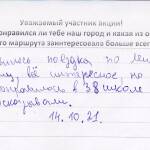 Уважаемый участник акции!
понравился ли тебе наш город и какая из о
го маршрута заинтересовала больше всег
поездка, по
всё интересное, но
в 38 школе
14.10.21.